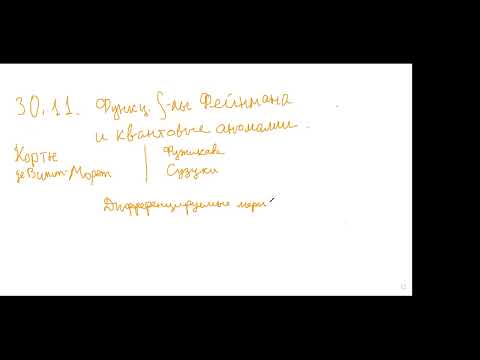 30.11. Функц. ∫-лы Фейнмана
и квантовые аномалии.
Картье
де Витт-Морет
Фужикава
Сузуки
Дифференцируемые меры